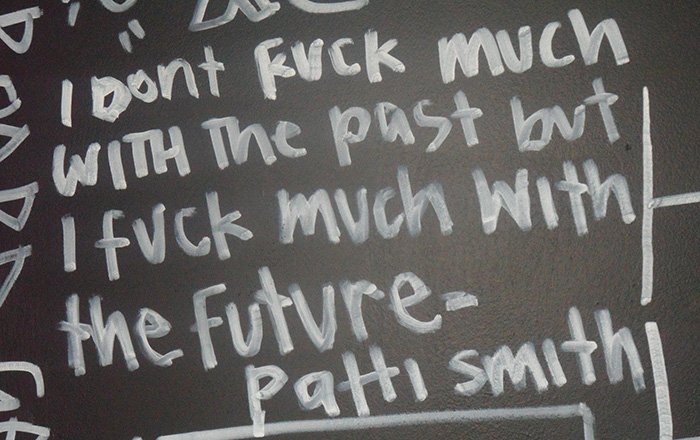 I DONt FUCK MUCH
WITH The past but
I fuck much With
the Future-
Patti smith